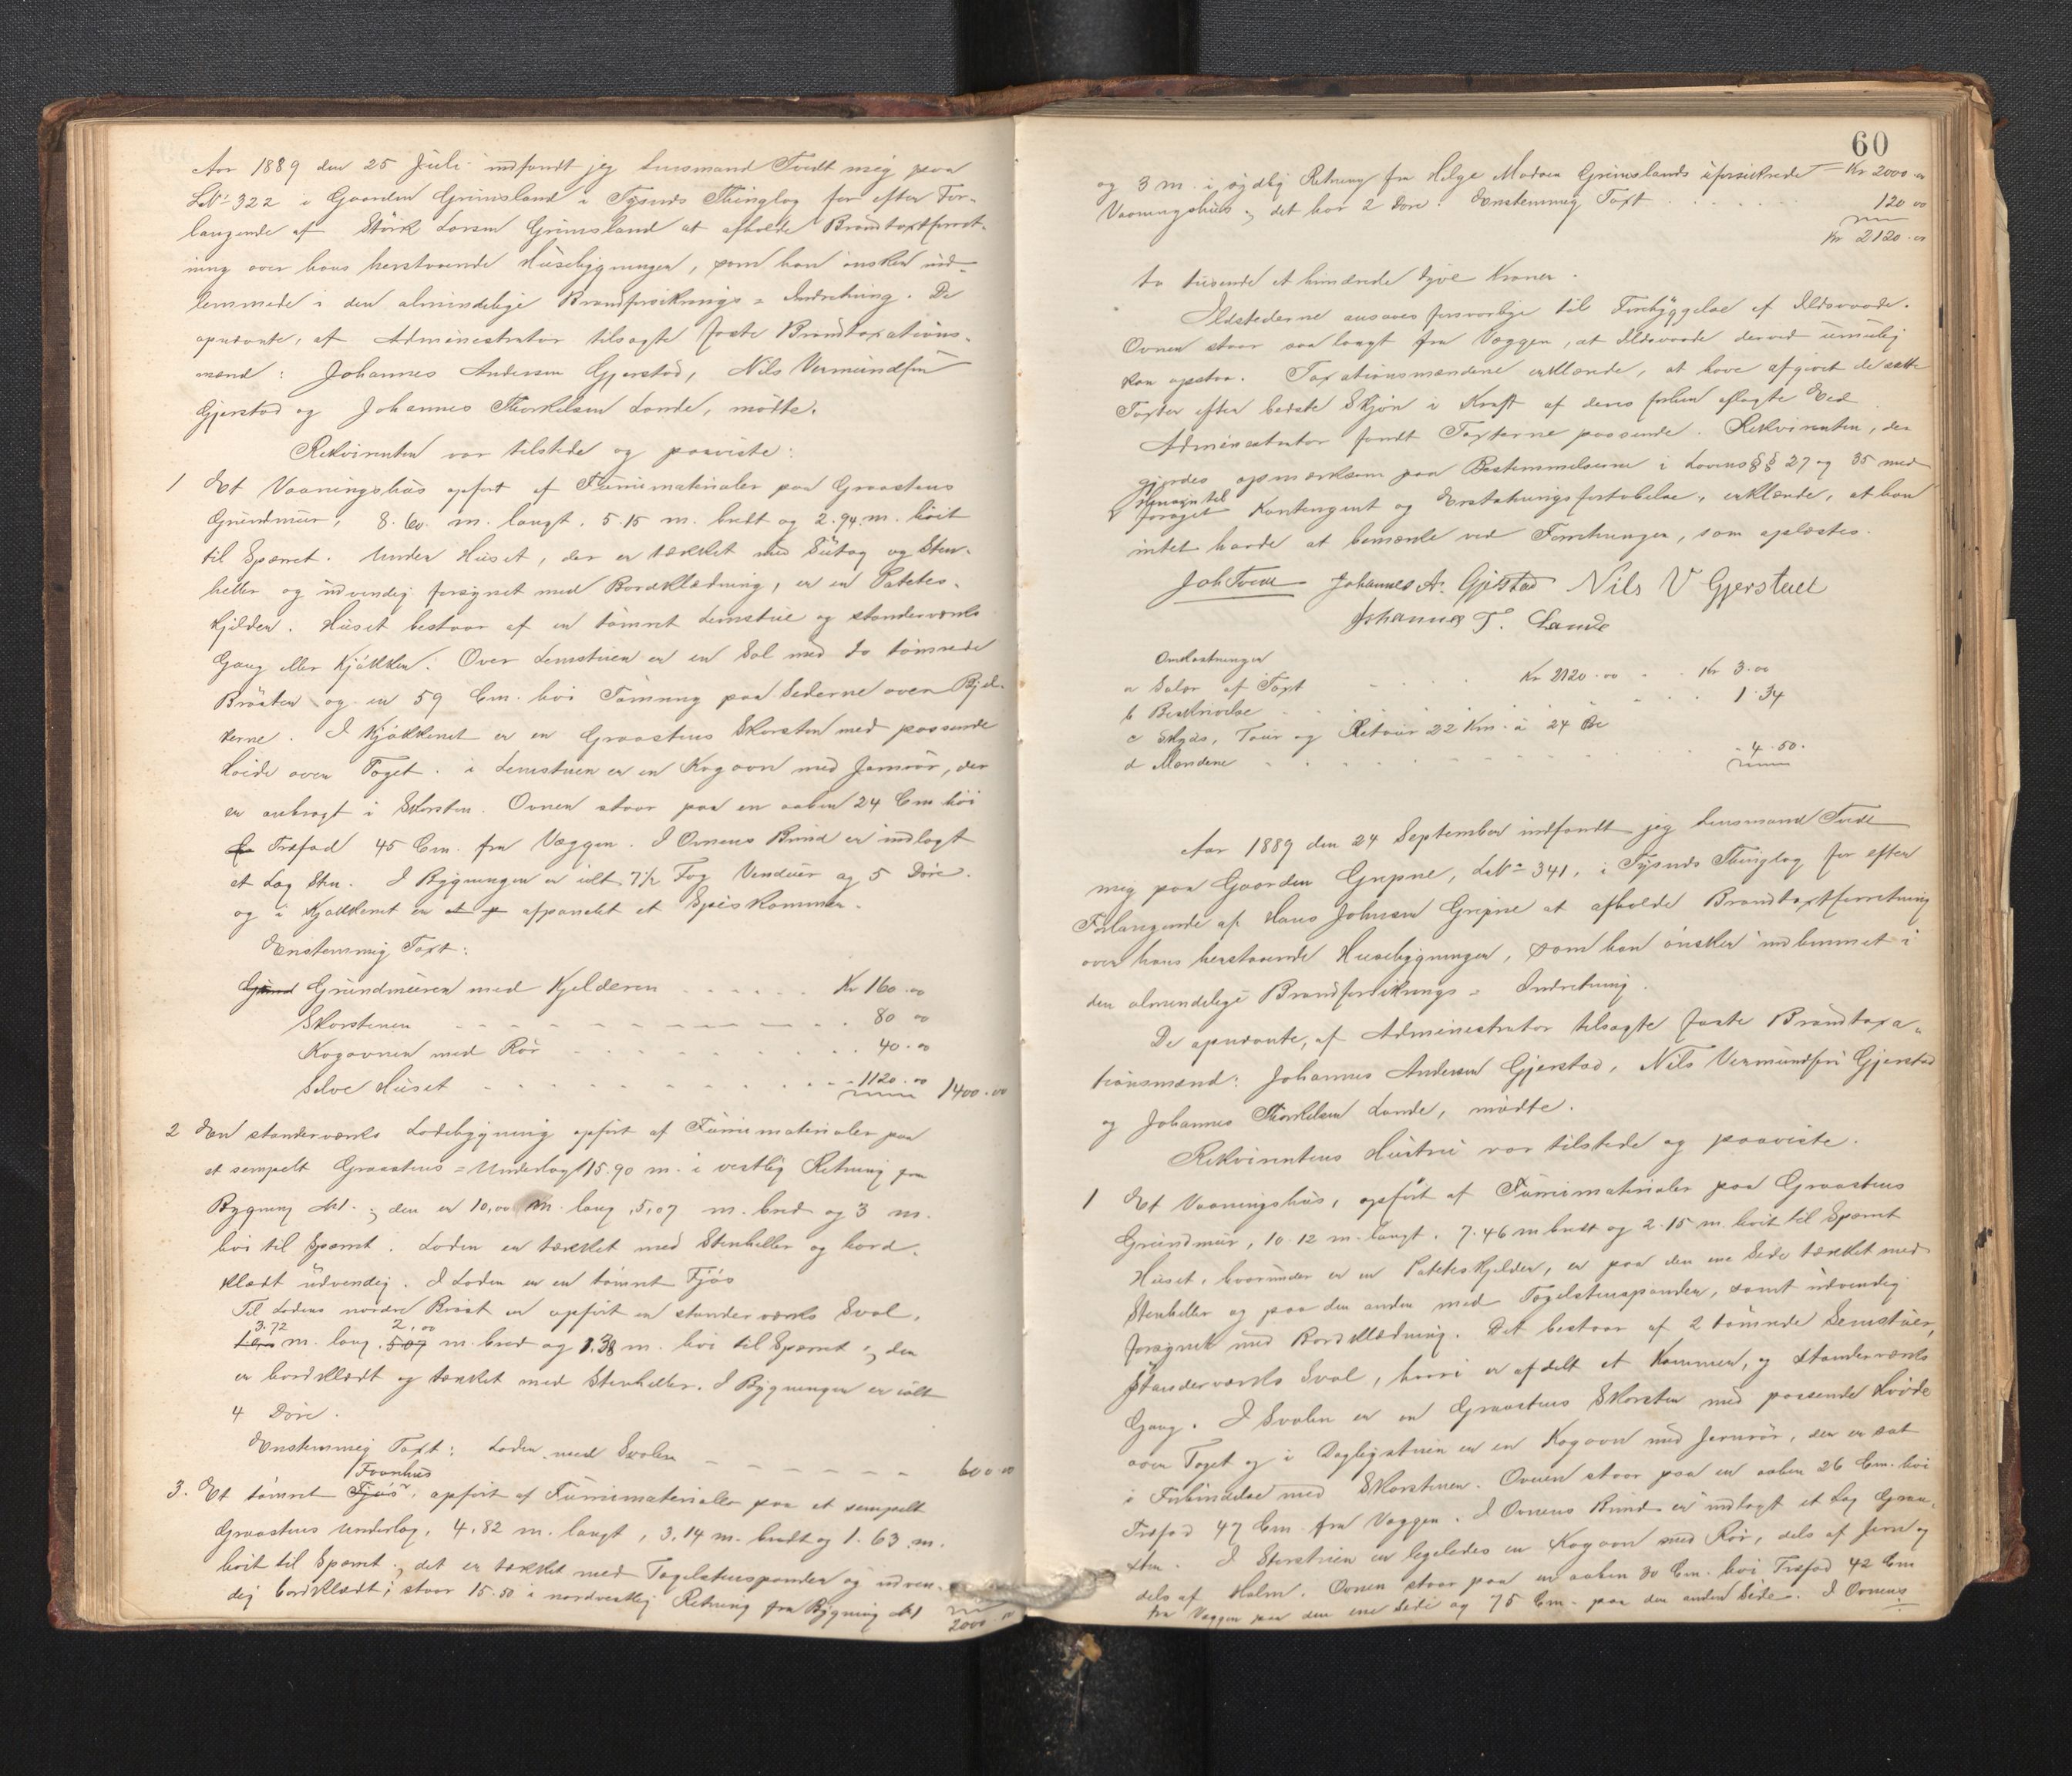 Aar 1889 den 25 Juli indfandt jeg Lensmand Tvedt mig paa
LNr 322 i Gaarden Grimsland i Tysnæs Thinglag for efter For-
langende af Störk Larsen Grimsland at afholde Brandtaxtforret-
ning over hans herstaaende Husebygninger, som han ønsker ind-
lemmede i den almindelige Brandforsikrings-Indretning. De
opnævnte, af Administrator tilsagte faste Brandtaxations-
mænd: Johannes Andersen Gjerstad, Nils Vermundsen
Gjerstad og Johannes Thorkelsen Lande, mødte.
Rekvirenten var tilstede og paaviste:
1 Et Vaaningshus opført af Furumaterialer paa Graastens
Grundmur, 8.60 m. langt, 5.15 m. bredt og 2.94 m. høit
til Spærret. Under Huset, der er tækket med Sutag og Sten-
heller og udvendig forsynet med Bordklædning, er en Potetes-
kjelder. Huset bestaar af en tømret Lemstue og standerværks
Gang eller Kjøkken. Over Lemstuen er en Sal med to tømrede
Brøster og en 59 Cm. høi Tømring paa Siderne over Bjel-
kerne. I Kjøkkenet er en Graastens Skorsten med passende
Høide over Taget. i Lemstuen er en Kogovn med Jernrør, der
er anbragt i Skorsten. Ovnen staar paa en aaben 24 Cm høi
Træfod 45 Cm. fra Væggen. I Ovnens Bund er indlagt
et Lag Sten. I Bygningen er ialt 7½ Fag Vinduer og 5 Døre.
og i Kjøkkenet er afpanelet et Spiskammer.
Enstemmig Taxt:
Grund Grundmuren med Kjelderen Kr 160.00
Skorstenen 80 00
Kogovnen med Rør 40.00
Selve Huset 1120.00 1400.00
2 En standerværks Ladebygning opført af Furumaterialer paa
et simpelt Graastens-Underlag 15.90 m. i vestlig Retning fra
Bygning No 1.; den er 10,00 m. lang, 5,07 m. bred og 3 m.
høi til Spærret. Laden er tækket med Stenheller og bord-
klædt udvendig. I Laden er en tømret Fjøs
Til Ladens nordre Brøst er opført en standerværks Sval,
3.72 m. lang, 2,00 5.07 m. bred og 1.38 m. høi til Spærret; den
er bordklædt og tækket med Stenheller. I Bygningen er ialt
4 Døre.
Enstemmig Taxt: Laden med Svalen 600.00
3. Et tømret Fjøs Faarehus, opført af Furumaterialer paa et simpelt
Graastens Underlag, 4,82 m. langt, 3,14 m. bredt og 1.63 m.
høit til Spærret; det er tækket med Tagstenspander og udven-
dig bordklædt; staar 15.50 i nordvestlig Retning fra Bygning No 1
2000 00
60
og 3 m. i sydlig Retning fra Helge Madsen Grimslands uforsikrede Kr 2000.00
Vaaningshus; det har 2 Døre. Enstemmig Taxt 120 00
Kr 2120.00
to tusende et hundrede tyve Kroner.
Ildstederne ansaaes forsvarlige til Forebyggelse af Ildsvaade.
Ovnen staar saa langt fra Væggen, at Ildsvaade derved umulig
kan opstaa. Taxationsmændene erklærede, at have afgivet de satte
Taxter efter bedste Skjøn i Kraft af deres forhen aflagte Ed
Administrator fandt Taxterne passende. Rekvirenten, der
gjordes opmærksom paa Bestemmelserne i Lovens §§ 27 og 35 med
Hensyn til
forøget Kontingent og Erstatningsfortabelse, erklærede, at han
intet havde at bemærke ved Forretningen, som oplæstes.
Joh Tvedt Johannes A. Gjestad Nils V Gjerstad
Johannes T. Lande
Omkostninger
a Salær af Taxt Kr 2120.00 Kr 3.00
b Beskrivelse 1.34
c Skyds, Tour og Retour 22 Km. á 24 Øre
d Mændene 4.50.
Aar 1889 den 24 September indfandt jeg Lensmand Tvedt
mig paa Gaarden Gripne, LNr 341, i Tysnæs Thinglag for efter
Forlangende af Hans Johnsen Gripne at afholde Brandtaxtforretning
over hans herstaaende Husebygninger, som han ønsker indlemmet i
den almindelige Brandforsikrings-Indretning.
De opnævnte, af Administrator tilsagte faste Brandtaxa-
tionsmænd: Johannes Andersen Gjerstad, Nils Vermundsen Gjerstad
og Johannes Thorkelsen Lande, mødte.
Rekvirentens Hustru var tilstede og paaviste.
1 Et Vaaningshus, opført af Furumaterialer paa Graastens
Grundmur, 10.12 m. langt, 7.46 m bredt og 2.15 m. høit til Spærret
Huset, hvorunder er en Poteteskjelder, er paa den ene Side tækket med
Stenheller og paa den anden med Tagelstenspander, samt udvendig
forsynet med Bordklædning. Det bestaar af 2 tømrede Lemstuer,
standerværks Sval, hvori er afdelt et Kammer, og standerværks
Gang. I Svalen er en Graastens Skorsten med passende Høide
over Taget og i Dagligstuen er en Kogovn med Jernrør, der er sat
i Forbindelse med Skorstenen. Ovnen staar paa en aaben 26 Cm. høi
Træfod 47 Cm. fra Væggen. I Ovnens Bund er indlagt et Lag Graa-
sten. I Storstuen er ligeledes en Kogovn med Rør, dels af Jern og
dels af Malm. Ovnen staar paa en aaben 30 Cm. høi Træfod 42 Cm
fra Væggen paa den ene Side og 75 Cm. paa den anden Side. I Ovnens